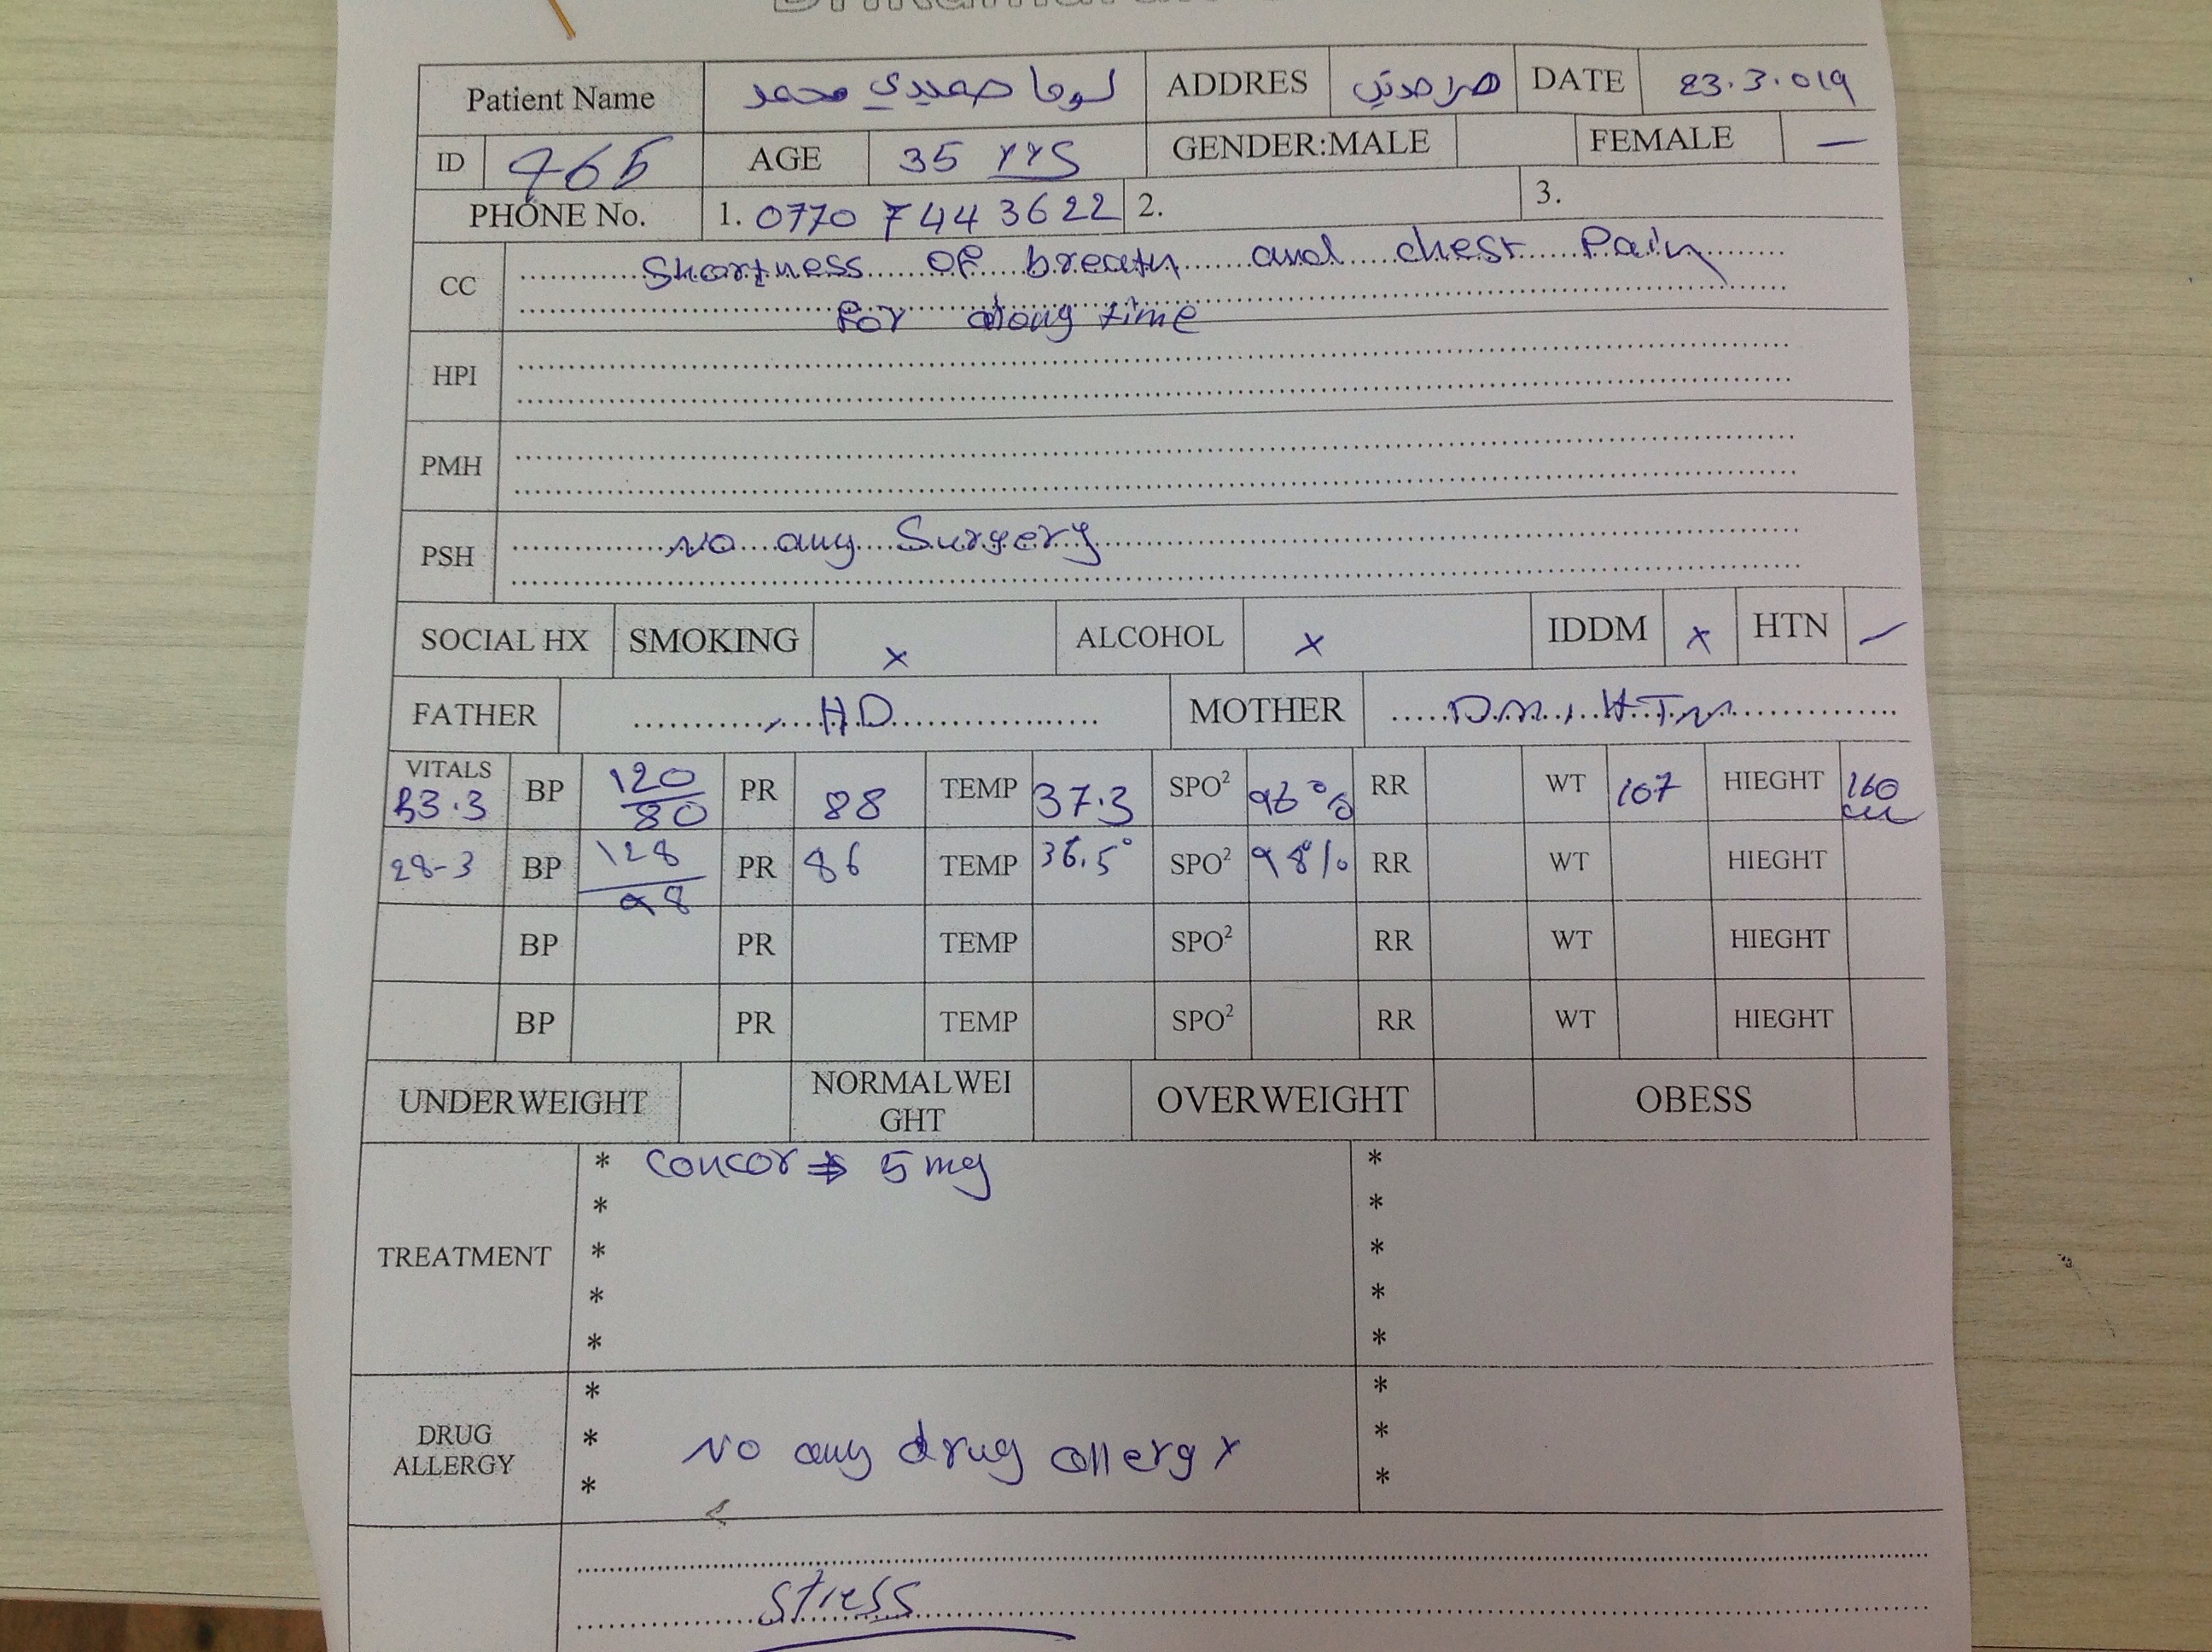 Patient Name لوما حميدي محمد ADDRES DATE 23.3.019
ID 465 AGE 35 yrs GENDER:MALE FEMALE —
PHONE No. 1. 0770 744 3622 2. 3.
CC Shortness of breath and chest Pain
For along time
HPI
PMH
PSH No any Surgery
SOCIAL HX SMOKING x ALCOHOL x IDDM x HTN
FATHER HD MOTHER D.M, HTN
VITALS 23.3 BP 120/80 PR 88 TEMP 37.3 SPO² 96% RR WT 107 HIEGHT 160 cm
28-3 BP 128/98 PR 86 TEMP 36.5° SPO² 98% RR WT HIEGHT
BP PR TEMP SPO² RR WT HIEGHT
BP PR TEMP SPO² RR WT HIEGHT
UNDERWEIGHT NORMALWEI
GHT OVERWEIGHT OBESS
TREATMENT * Concor ⇒ 5 mg *
* *
* *
* *
* *
DRUG
ALLERGY * *
* No any drug allergy *
* *
stress